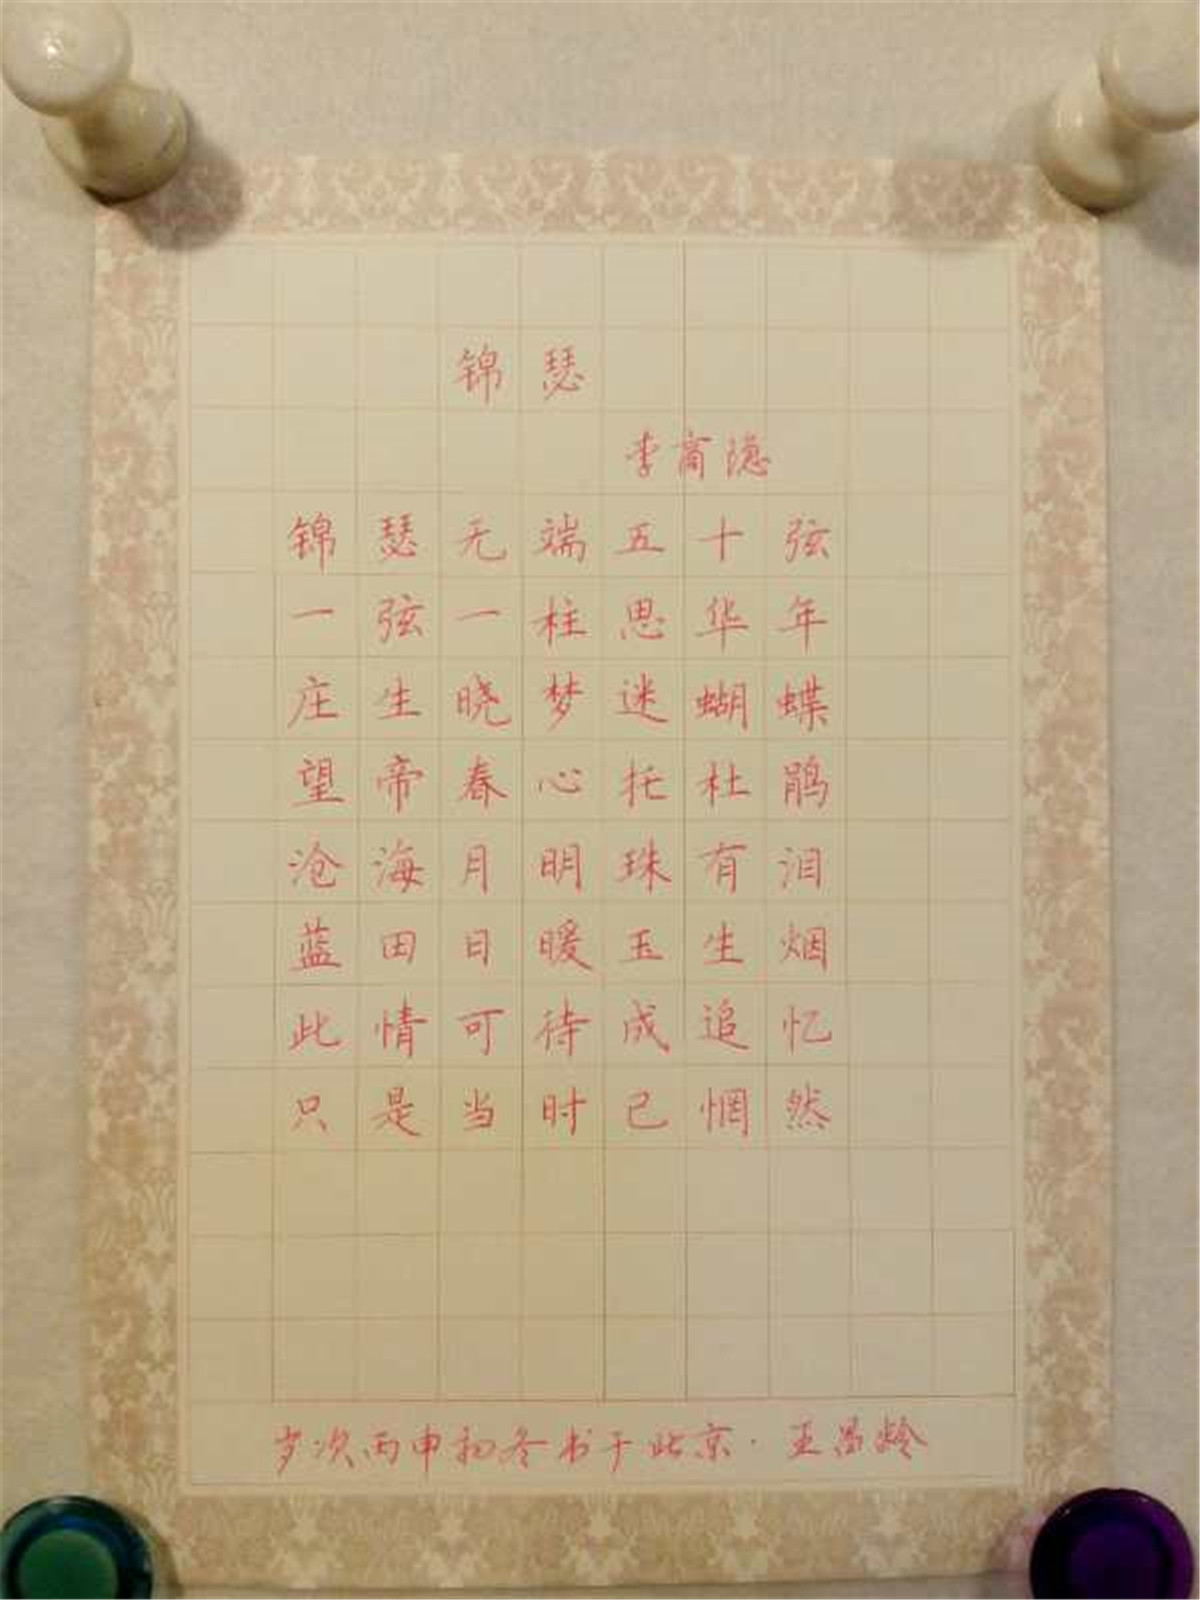 锦瑟
李商隐
锦瑟无端五十弦
一弦一柱思华年
庄生晓梦迷蝴蝶
望帝春心托杜鹃
沧海月明珠有泪
蓝田日暖玉生烟
此情可待成追忆
只是当时已惘然
岁次丙申初冬书于北京·王昌龄